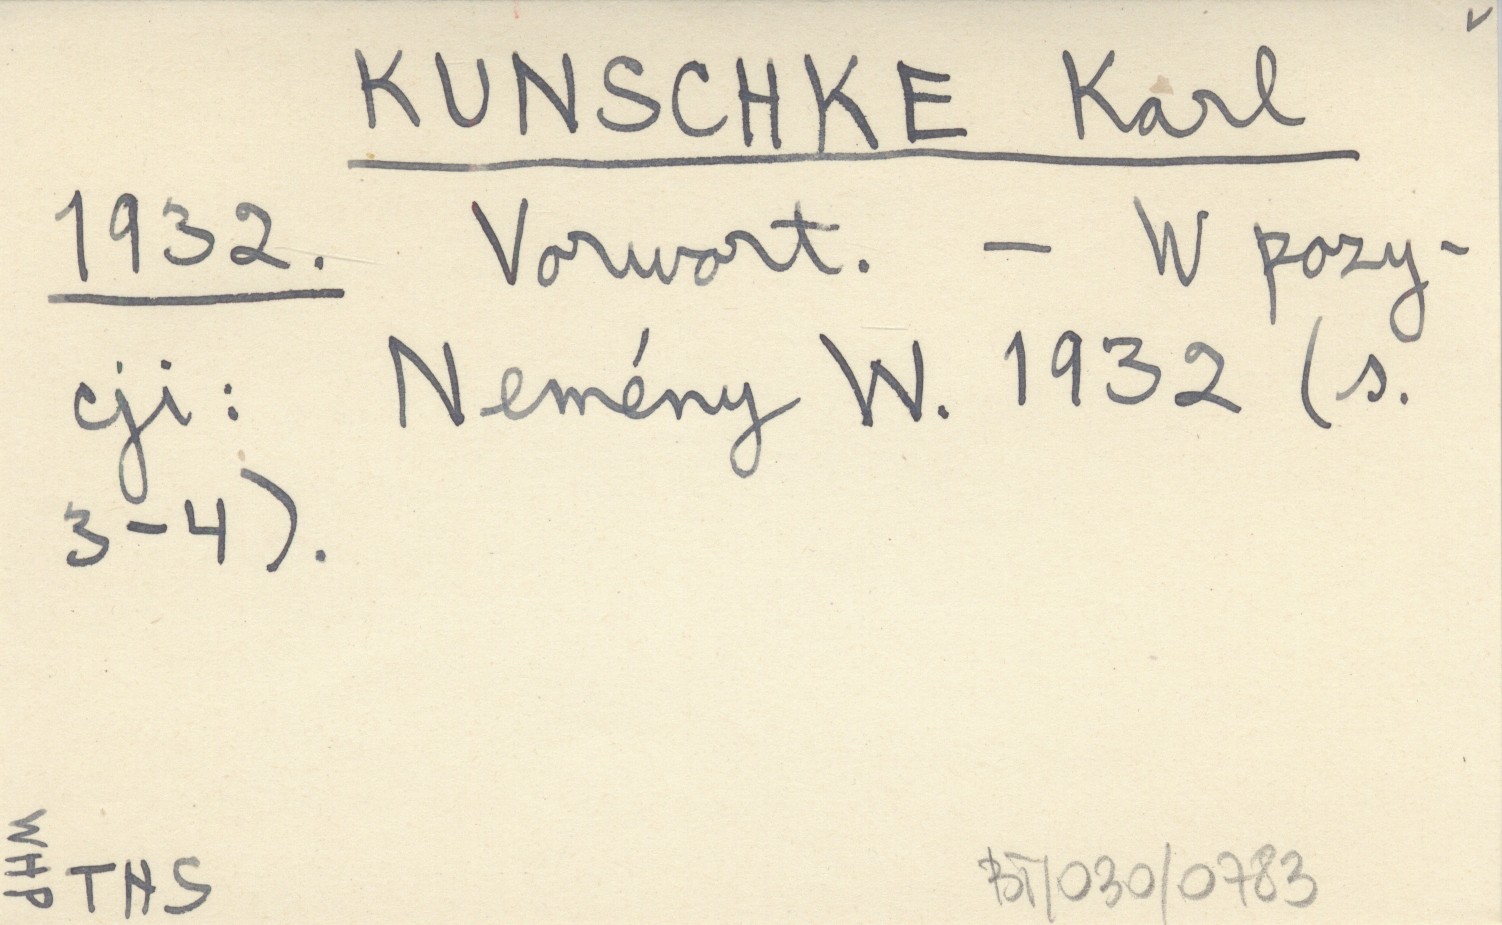 KUNSCHKE Karl
1932. Vorwort. - W pozy-
cji: Nemény W. 1932 (s.
3-4).
WHP
THS
BT/030/0783